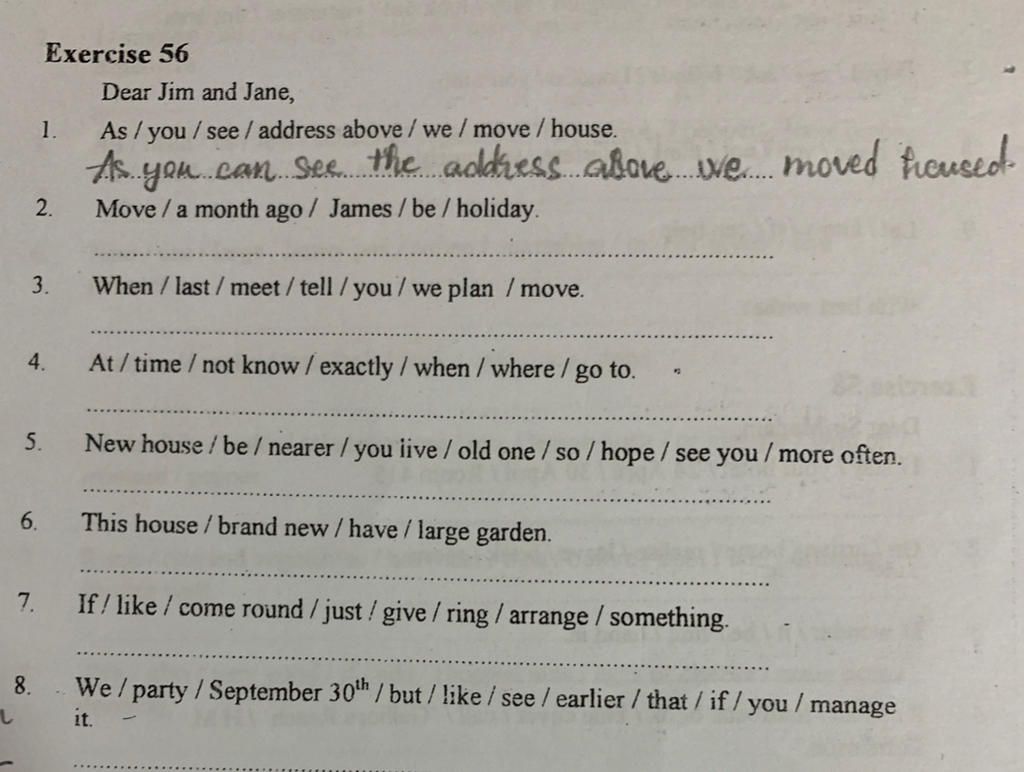 Exercise 56
Dear Jim and Jane,
1. As / you / see / address above / we / move / house.
As you can see the address above we moved housed
2. Move / a month ago / James / be / holiday.
3. When / last / meet / tell / you / we plan / move.
4. At / time / not know / exactly / when / where / go to.
5. New house / be / nearer / you live / old one / so / hope / see you / more often.
6. This house / brand new / have / large garden.
7. If / like / come round / just / give / ring / arrange / something.
8. We / party / September 30th / but / like / see / earlier / that / if / you / manage
it.